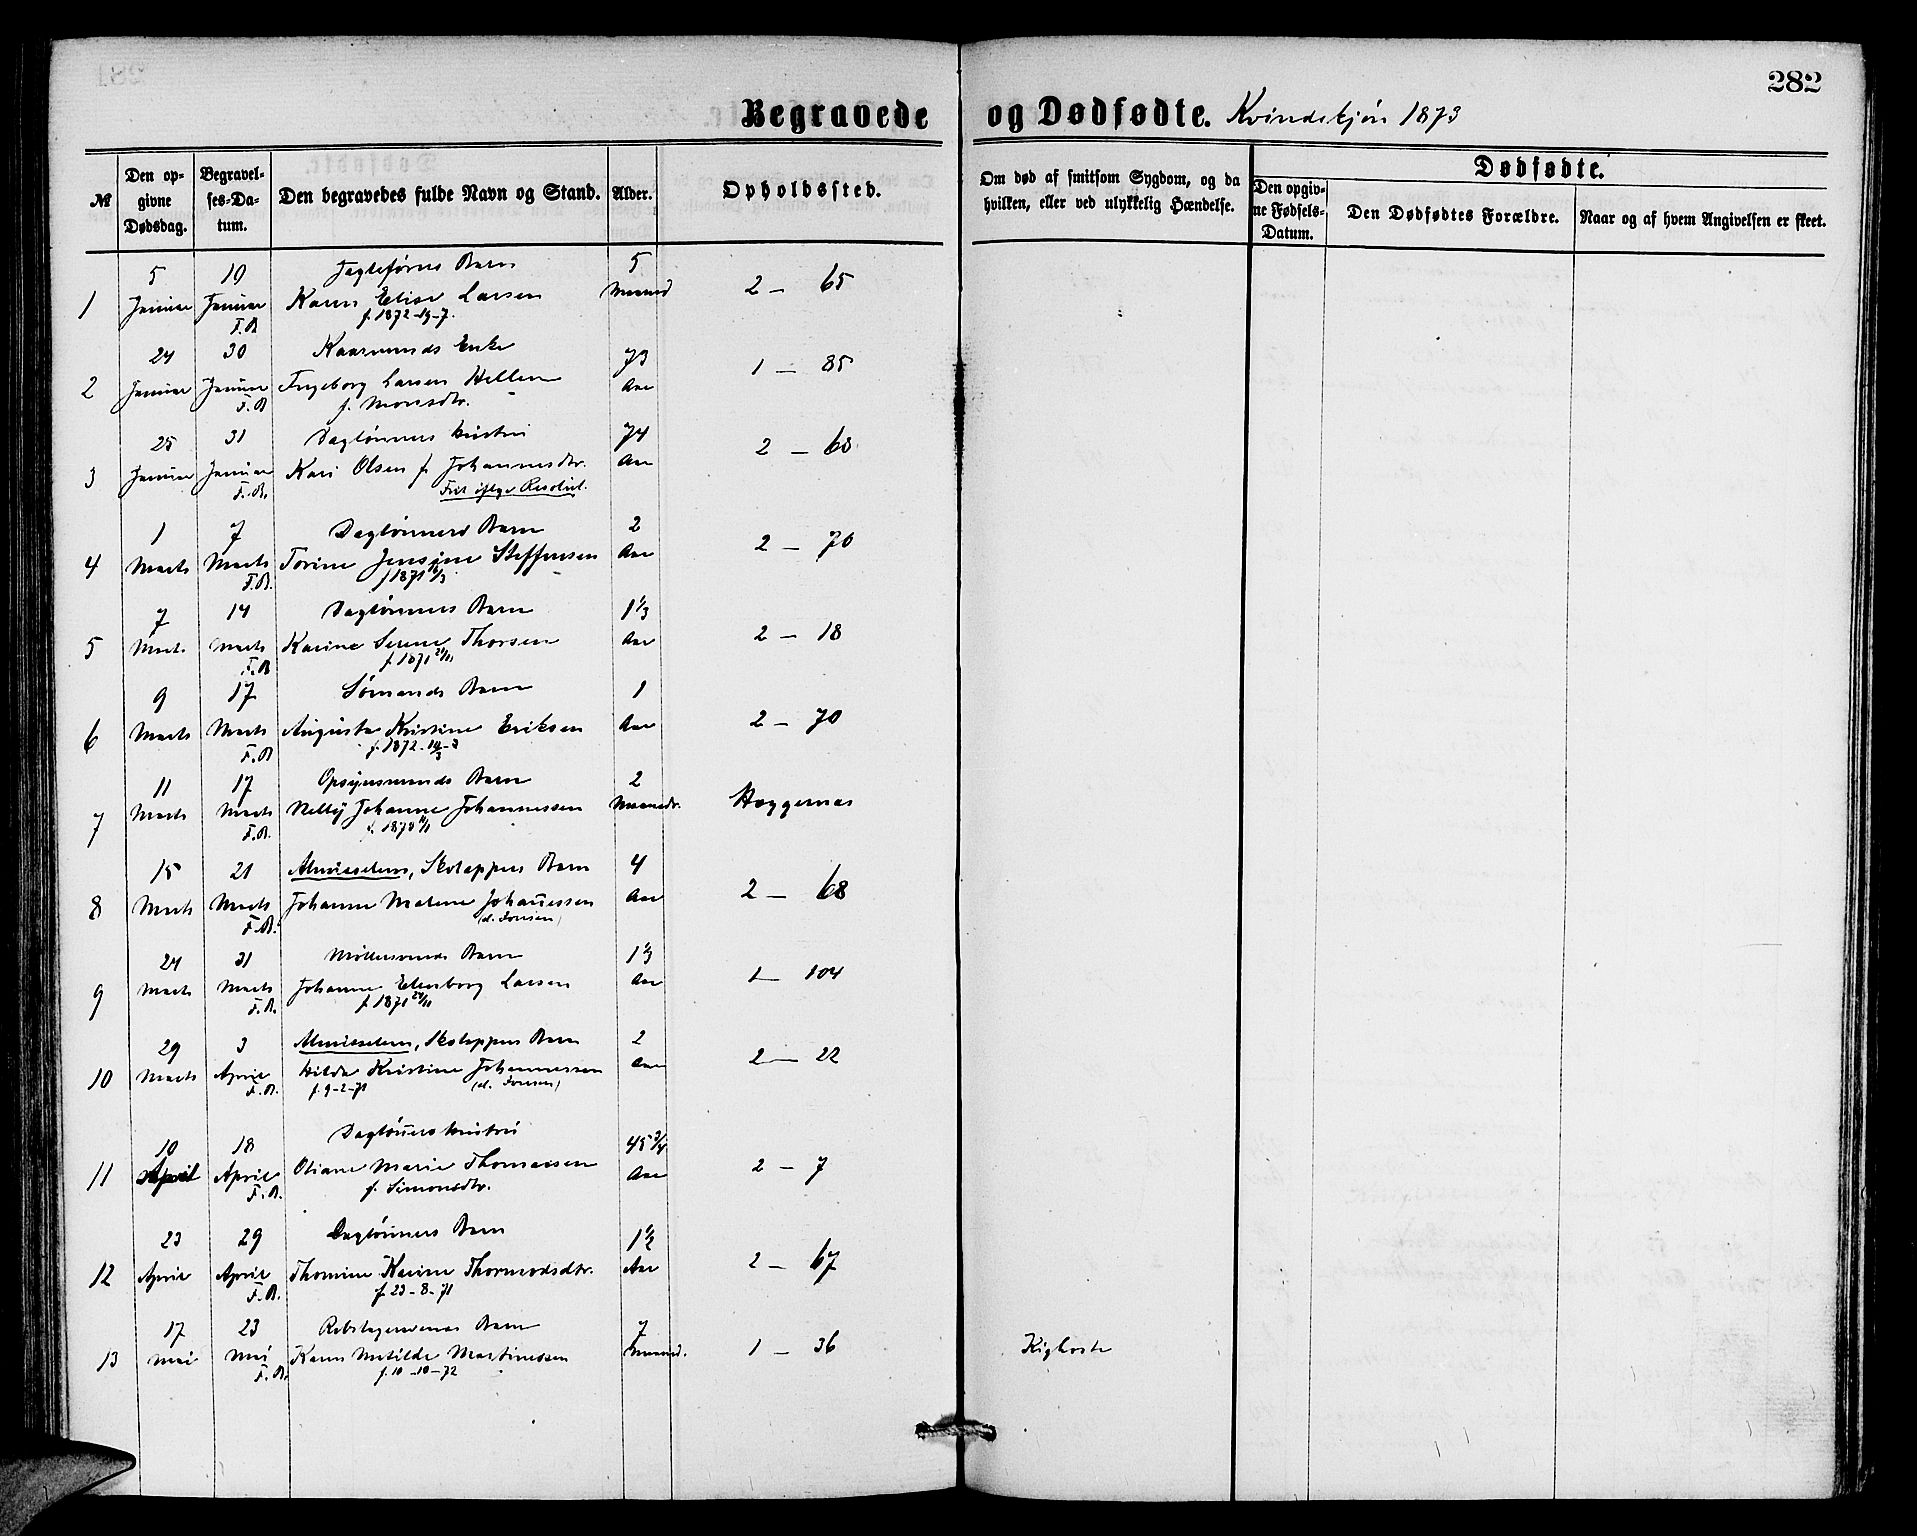 282
Begravede og Dødfødte. Kvindekjøn 1873
№
Den opgivne Dødsdag.
Begravelses-Datum.
Den begravedes fulde Navn og Stand.
Alder.
Opholdssted.
Om død af smitsom Sygdom, og da hvilken, eller ved ulykkelig Hændelse.
Dødfødte.
Den opgivne Fødsels-Datum.
Den Dødfødtes Forældre.
Naar og af hvem Angivelsen er skeet.
5 10 Jagteførers Barn 5
1 Januar Januar Karen Elise Larsen Maaned 2 – 65
F.B. f. 1872-19-7.
24 30 Enke 73
2 Januar Januar Ingeborg Larsen Aar 1 – 85
F.B. f. Monsdtr.
25 31 Dagtønners Hustru 74
3 Januar Januar Kari Olsen f. Johannesdtr. Aar 2 – 68
F.B. Frit iflge Resolut.
1 7 Dagtønners Barn 2
4 Marts Marts Torine Jensine Steffensen Aar 2 – 70
F.B. f 1871
7 14 Dagtønners Barn 1 1/3
5 Marts Marts Karine Serene Thorsen Aar 2 – 18
F.B. f. 1871 24/11
9 17 Sømands Barn 1
6 Marts Marts Augusta Kristine Eriksen Aar 2 – 70
F.B. f. 1872
11 17 Opsynsmands Barn 2
7 Marts Marts Nelly Johanne Johannessen Maaneder.
F.B.
15 21 Almisselem, Skolappers Barn 4
8 Marts Marts Johanne Malene Johanessen Aar 2 – 68
F.B.
24 31 Møllersvends Barn 1 1/3
9 Marts Marts Johanne Larsen Aar 1 – 104
F.B. f. 1871
29 3 Almisselem, Skolappers Barn 2
10 Marts April Hilda Kristine Johannessen Aar 2 – 22
F.B. f. 9-2-71
10 18 Dagtønners Hustru 45 3/4
11 April April Oliane Marie Thomassen Aar 2 – 7
F.B. f. Simonsdtr.
23 29 Dagtønners Barn 1 1/2
12 April April Thomine Karine Thormodsdtr. Aar 2 – 67
F.B. f. 23-8-71
17 23 Rebslagersvends Barn 7
13 Mai Mai Karen Matilde Martinessen Maaned. 1 – 36 Kighoste
F.B. f. 10-10-72